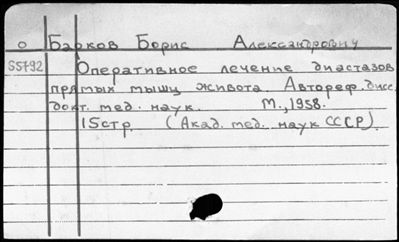 о Барков Борис Александрович
55792 Оперативное лечение диастазов
прямых мышц живота. Автореф. дисс.
докт. мед. наук. М., 1958.
15стр. (Акад. мед. наук СССР).